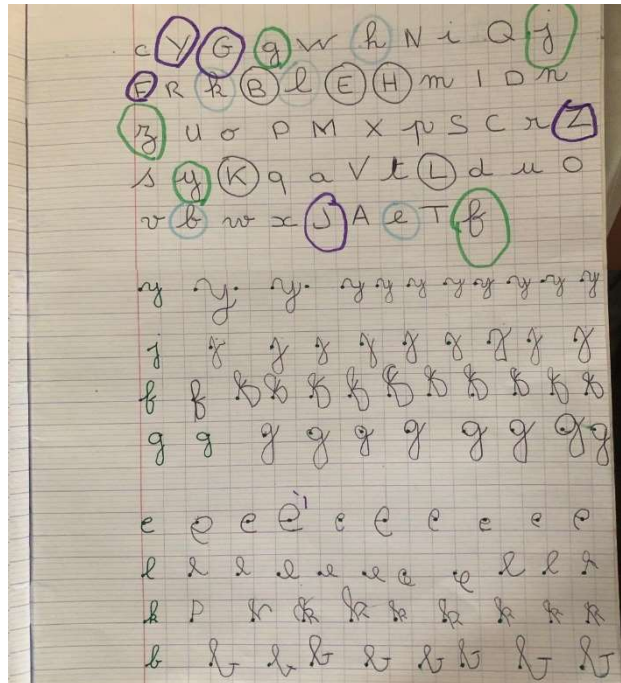 c Y G g W h N i Q j
F R k B l E H m I D n
z u o P M X p S C r Z
s y K q a V t L d u O
v b w x J A e T f
y y y y y y y y y y y
j j j j j j j j j j
f f f f f f f f f f f
g g g g g g g g g g
e e e e e e e e e e
l l l l l l e e l l l
k p k k k k k k k k
b b b b b b b b b